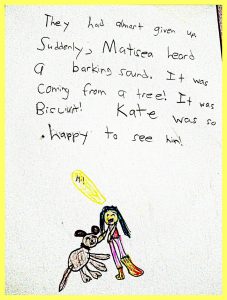 They had almost given up
Suddenly, Matisea heard
a barking sound. It was
coming from a tree! It was
Biscuit! Kate was so
happy to see him!
Hi!